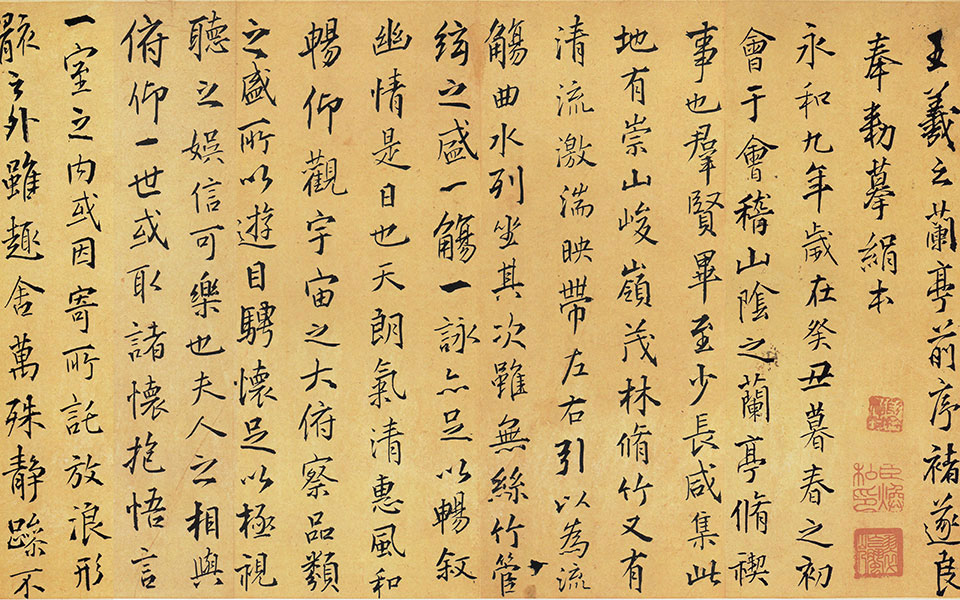 王羲之蘭亭前序褚遂良
奉勅摹絹本
永和九年歲在癸丑暮春之初
會于會稽山陰之蘭亭脩禊
事也羣賢畢至少長咸集此
地有崇山峻嶺茂林脩竹又有
清流激湍映帶左右引以為流
觴曲水列坐其次雖無絲竹管
絃之盛一觴一詠亦足以暢敘
幽情是日也天朗氣清惠風和
暢仰觀宇宙之大俯察品類
之盛所以遊目騁懷足以極視
聽之娛信可樂也夫人之相與
俯仰一世或取諸懷抱悟言
一室之內或因寄所託放浪形
骸之外雖趣舍萬殊靜躁不